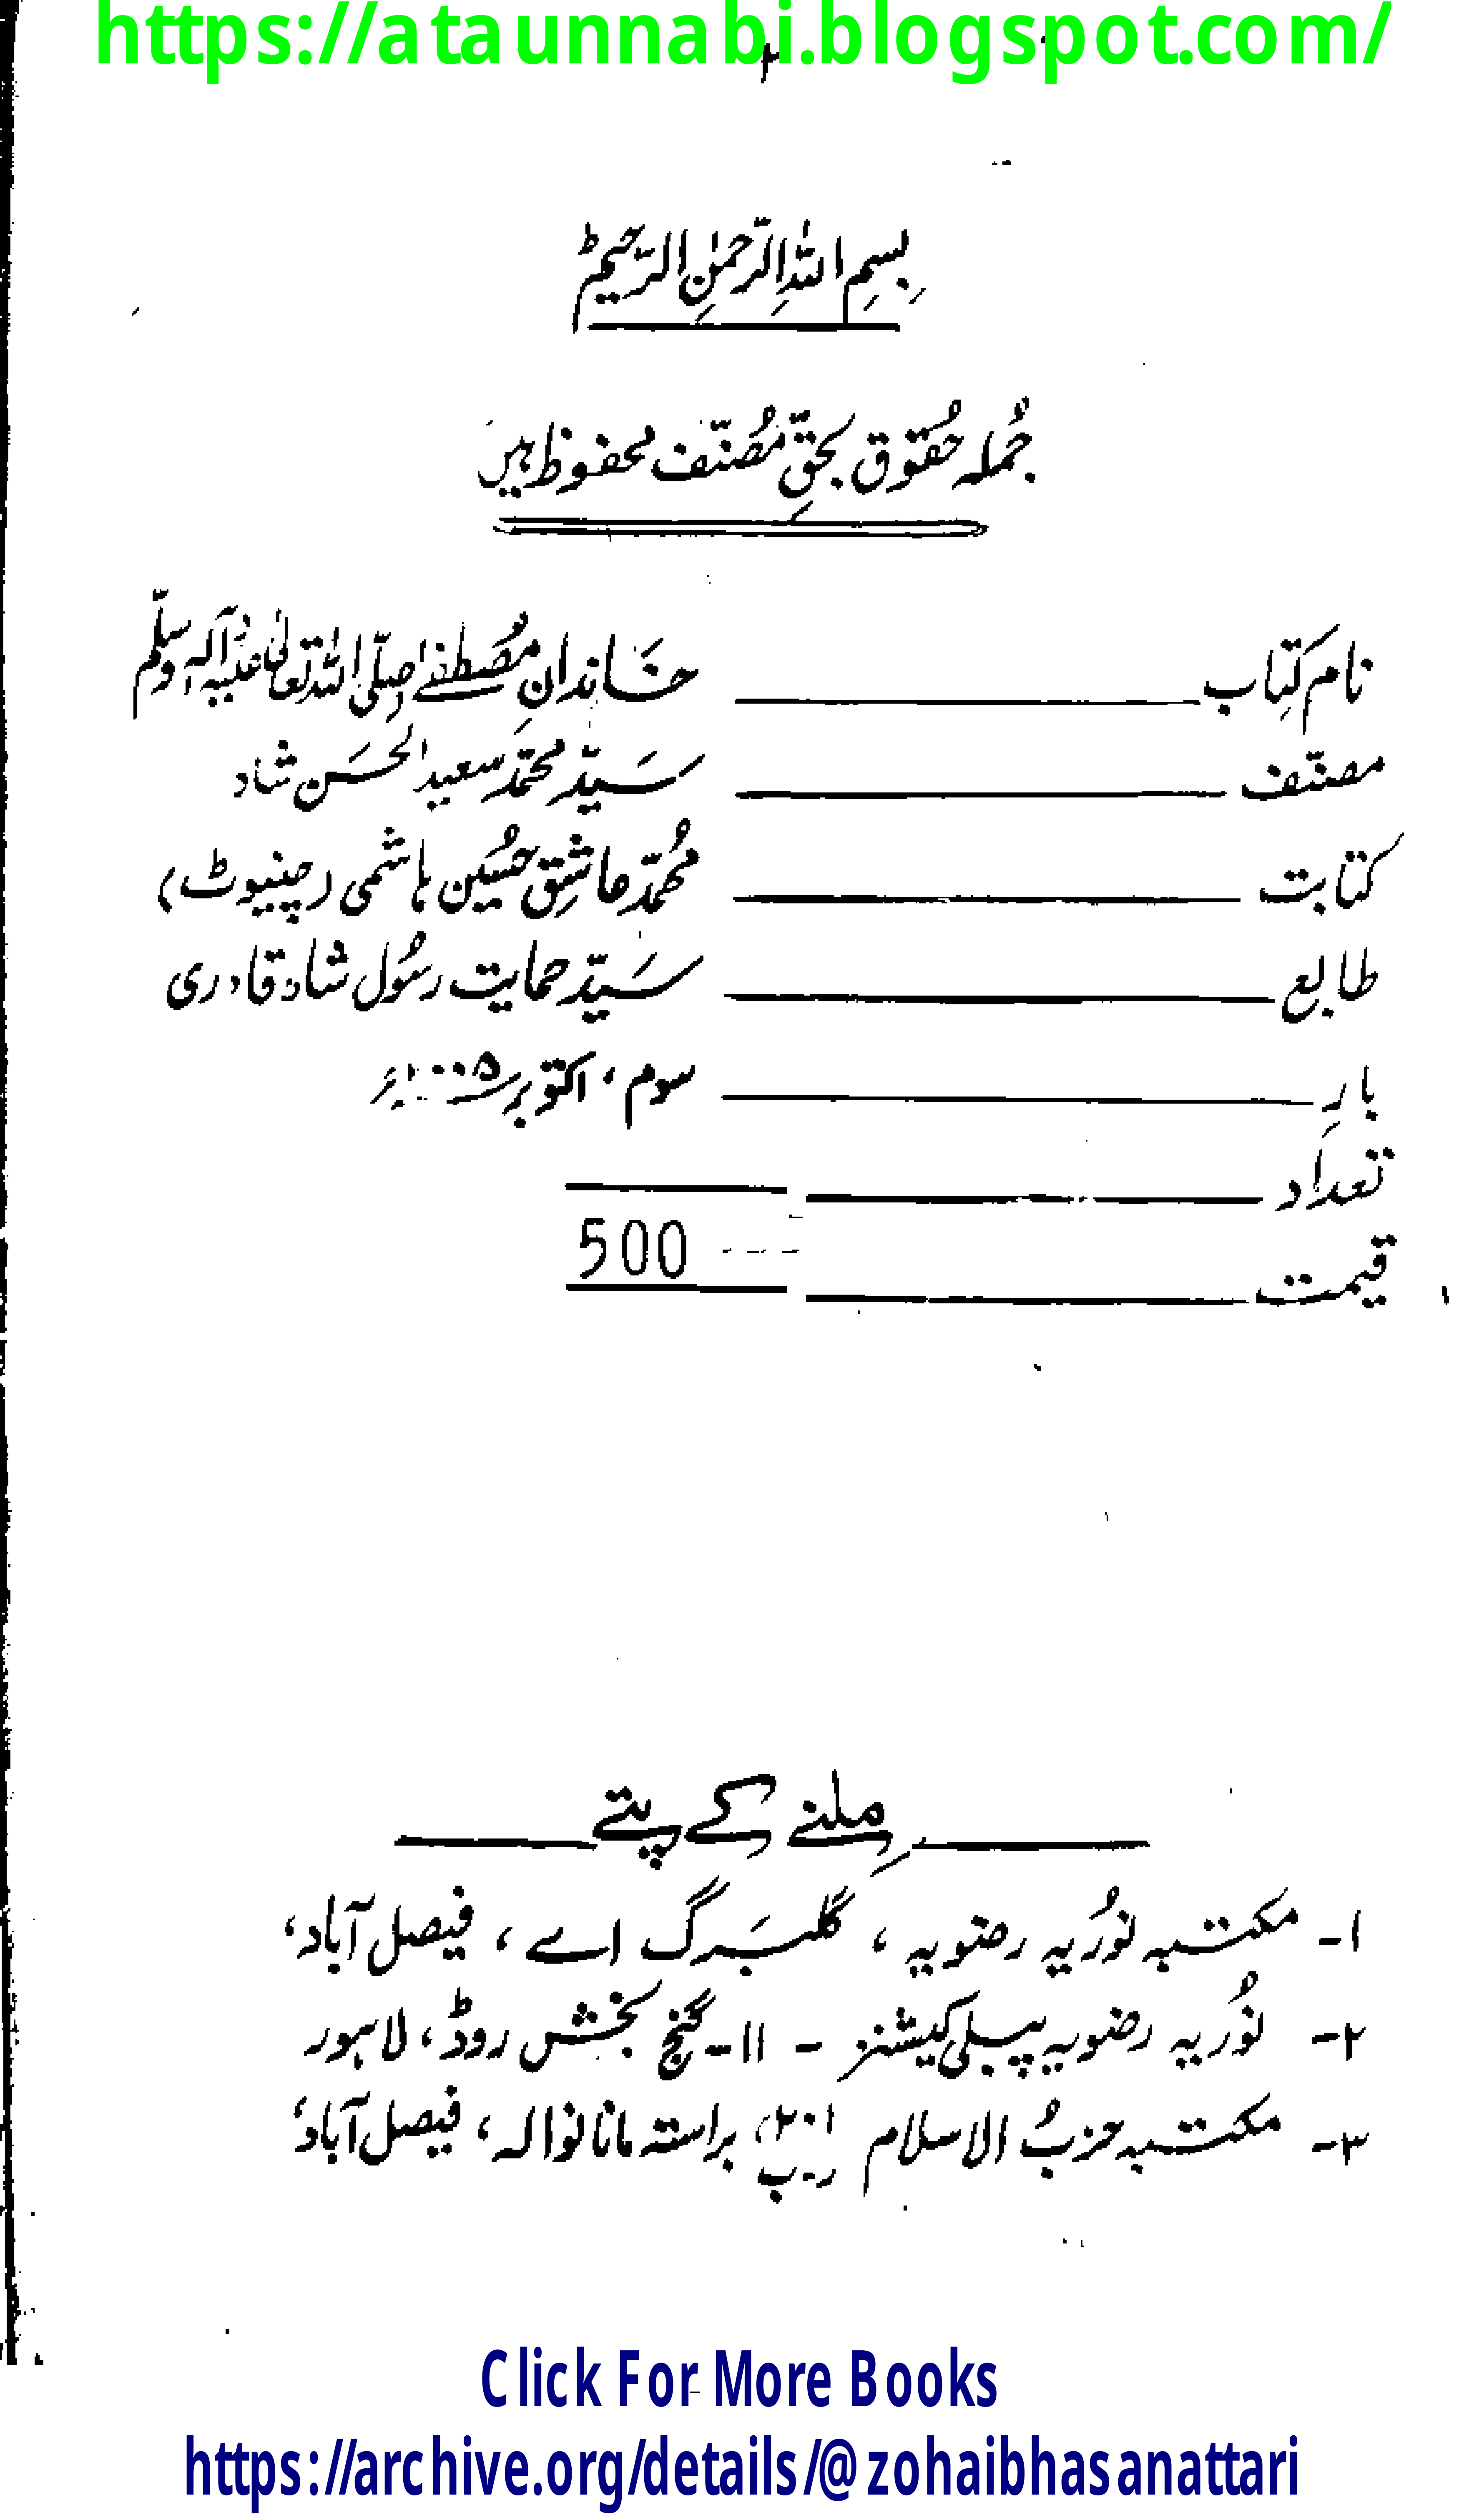 https://ataunnabi.blogspot.com/
۲
بِسْمِ اللّٰهِ الرَّحْمٰنِ الرَّحِیْمِ ط
جُملہ حقُوق بحقِّ مُصنّف محفوظ ہیں
نام کتاب ــــــ خاندانِ مُصطفےٰ صلّی اللہ تعالیٰ علیہ وآلہٖ وسلّم
مصنّف ــــــ سَیّد محمّد سعید الحسَن شاہ
کتابت ــــــ مُحمّد عاشِق حسُین ہاشمی (چنیوٹ)
طابع ــــــ سَیّد حمایت رسُول شاہ قادری
بارِ ــــــ سوم، اکتوبر ۲۰۰۵ء
تعداد ــــــ
قیمت ــــــ 500
مِلنے کے پتے
۱- مکتبہ نوُریہ رضویہ، گلبَرگ اے، فیصل آباد،
۲- نوُریہ رضویہ پبلی کیشنز - ۱۱- گنج بخش روڈ، لاہور
۳- مکتبہ حزبُ الاسلام ۲۰۱ ر-ب، براستہ مانانوالہ، فیصل آباد،
Click For More Books
https://archive.org/details/@zohaibhasanattari